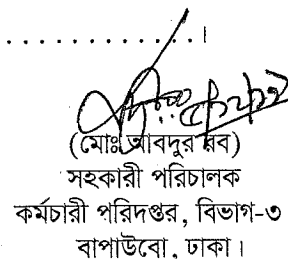 . . . . . . . . . . . . ।
(মোঃ আবদুর রব)
সহকারী পরিচালক
কর্মচারী পরিদপ্তর, বিভাগ-৩
বাপাউবো, ঢাকা।